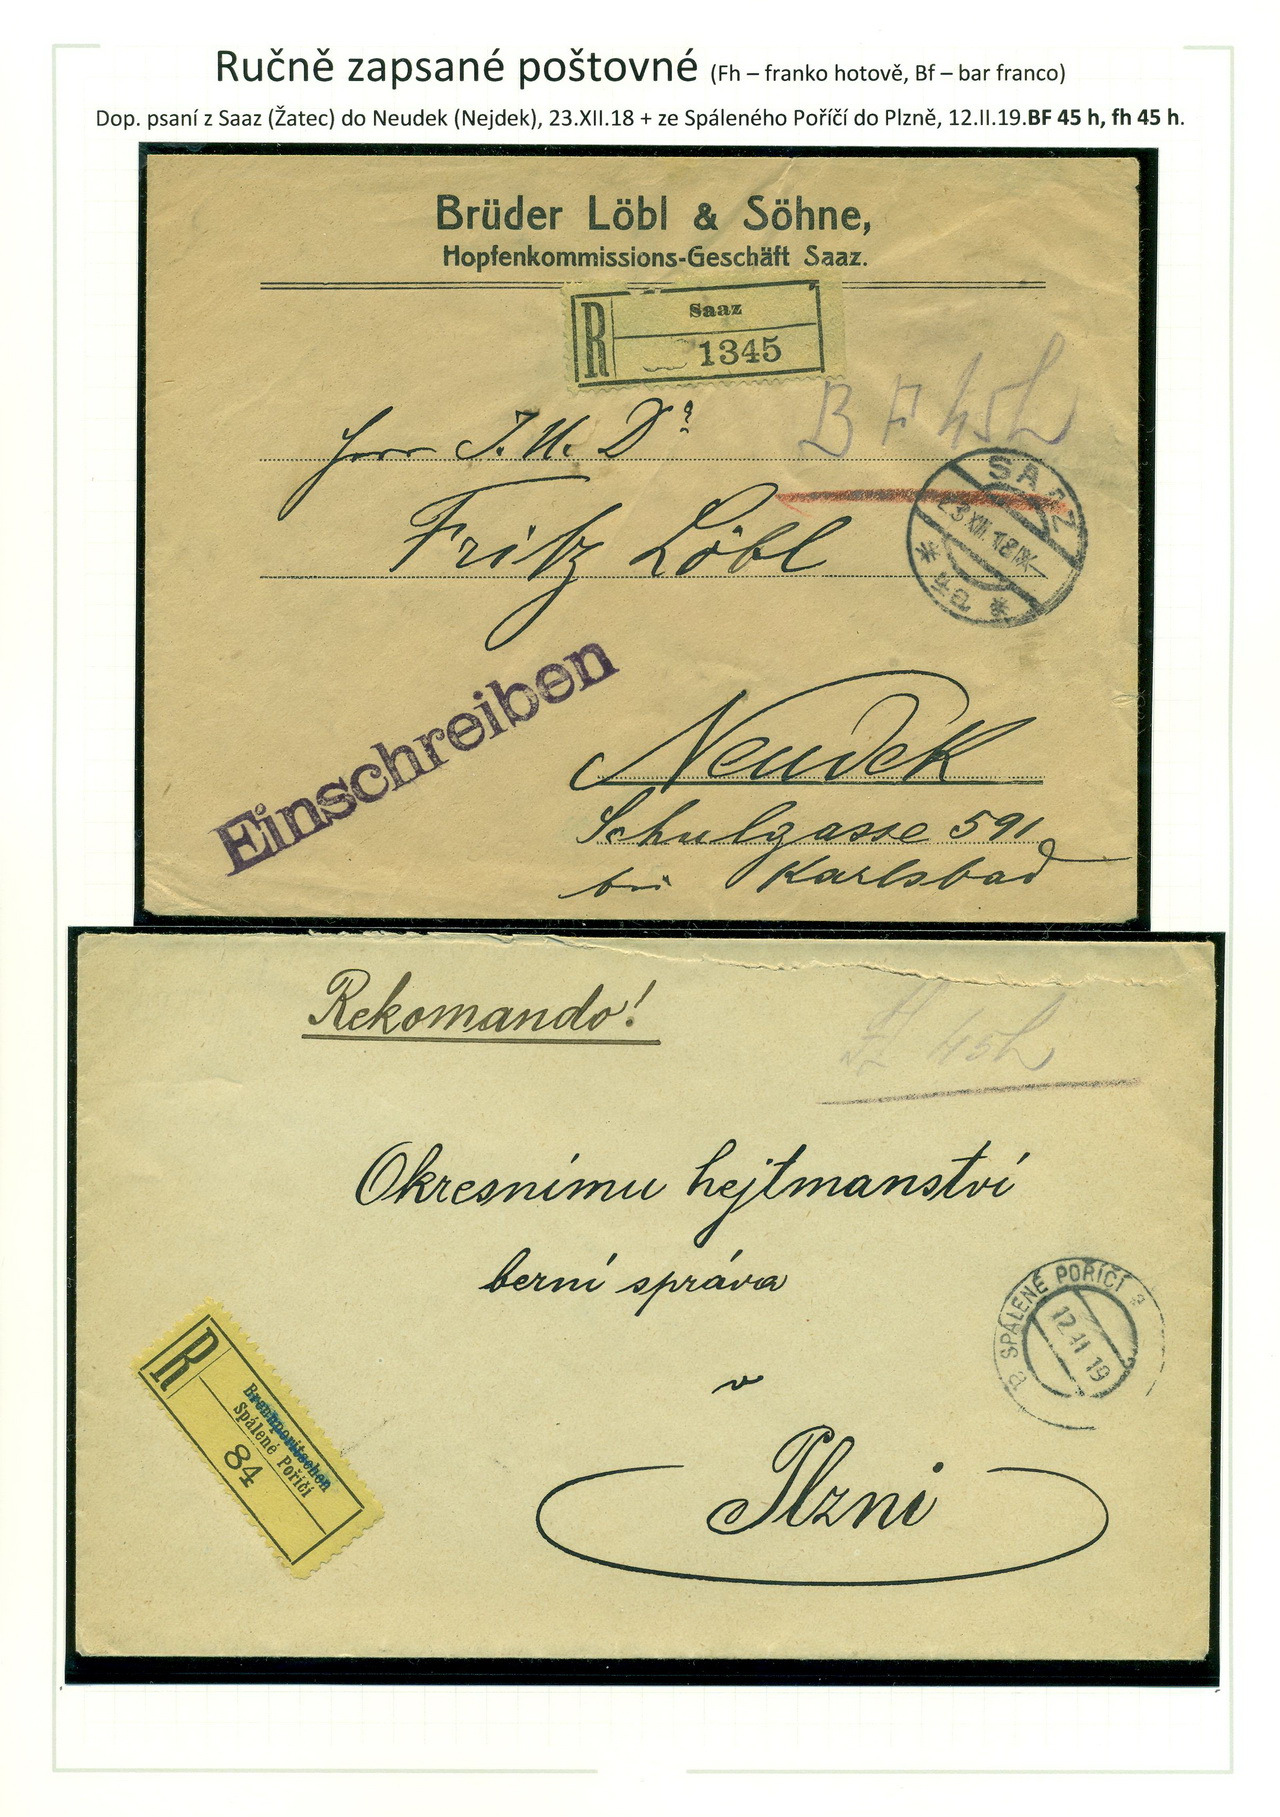 Ručně zapsané poštovné (Fh – franko hotově, Bf – bar franco)
Dop. psaní z Saaz (Žatec) do Neudek (Nejdek), 23.XII.18 + ze Spáleného Poříčí do Plzně, 12.II.19.BF 45 h, fh 45 h.
Brüder Löbl & Söhne,
Hopfenkommissions-Geschäft Saaz.
R
Saaz
1345
B F 45h
Herr J. U. Dr
Fritz Löbl
SAAZ
23 XII. 18 IX
* 4a *
Einschreiben
Neudek
Schulgasse 591
bei Karlsbad
Rekomando!
45h
Okresnímu hejtmanství
berní správa
v
Plzni
SPÁLENÉ POŘÍČÍ
12 II 19
R
Brennporitschen
Spálené Poříčí
84